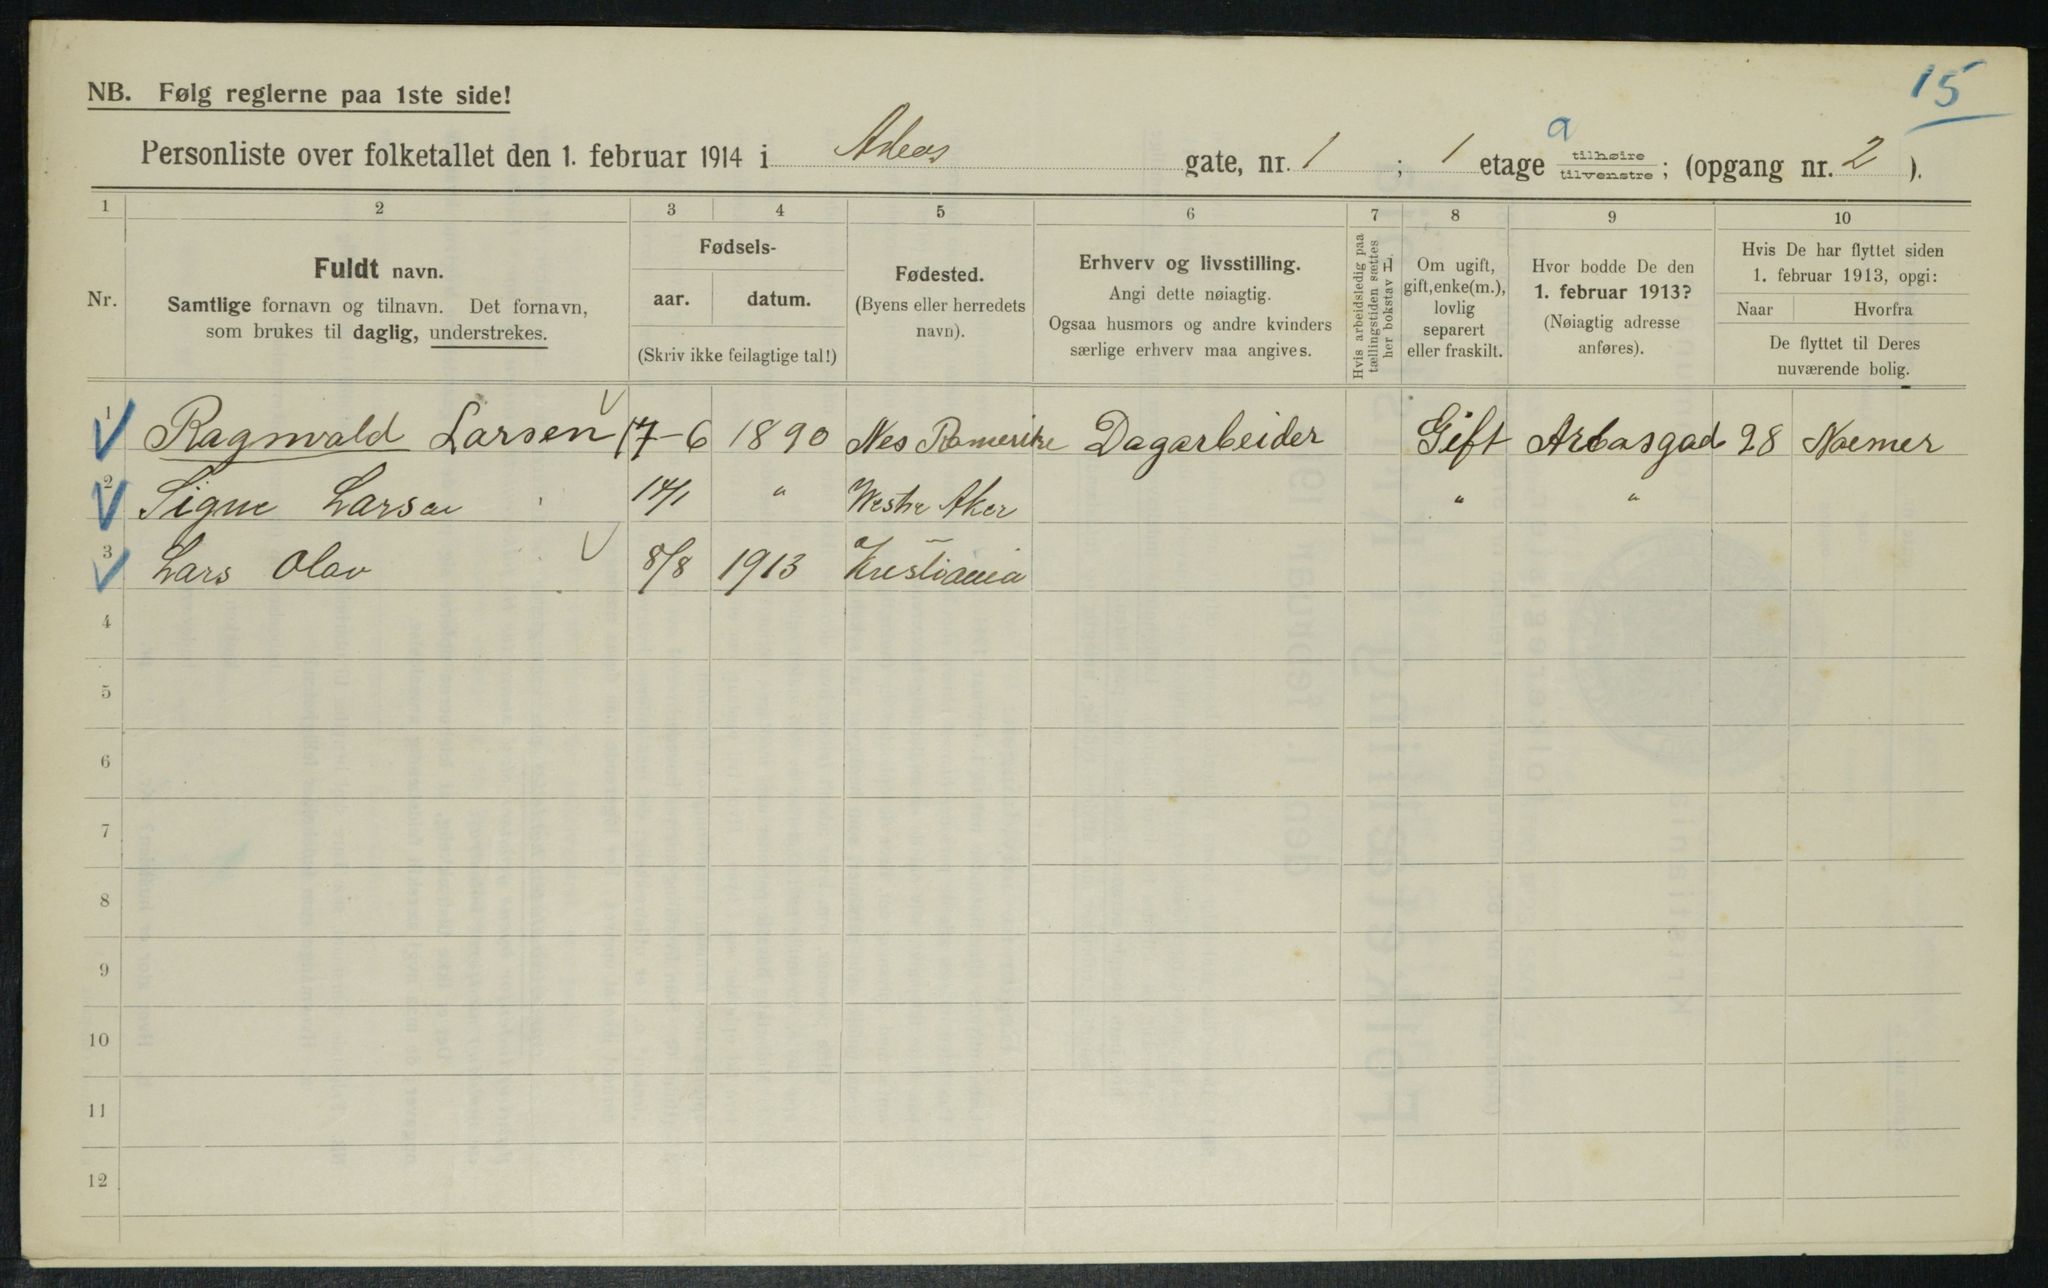 15
NB. Følg reglerne paa 1ste side!
Personliste over folketallet den 1. februar 1914 i Arbos gate, nr. 1 ; 1 etage a tilhøire tilvenstre ; (opgang nr. 2 ).
1 2 3 4 5 6 7 8 9 10
Nr.
Fuldt navn.
Samtlige fornavn og tilnavn. Det fornavn,
som brukes til daglig, understrekes.
Fødsels-
aar. datum.
(Skriv ikke feilagtige tal!)
Fødested.
(Byens eller herredets
navn).
Erhverv og livsstilling.
Angi dette nøiagtig.
Ogsaa husmors og andre kvinders
særlige erhverv maa angives.
Hvis arbeidsledig paa
tællingstiden sættes
her bokstav L
Om ugift,
gift, enke(m.),
lovlig
separert
eller fraskilt.
Hvor bodde De den
1. februar 1913?
(Nøiagtig adresse
anføres).
Hvis De har flyttet siden
1. februar 1913, opgi:
Naar Hvorfra
De flyttet til Deres
nuværende bolig.
1 Ragnvald Larsen 17-6 1890 Nes Romerike Dagarbeider Gift Arbosgad 28 Noemer
2 Signe Larsen 14/1 " Westre Aker " "
3 Lars Olav 8/8 1913 Kristiania
4
5
6
7
8
9
10
11
12